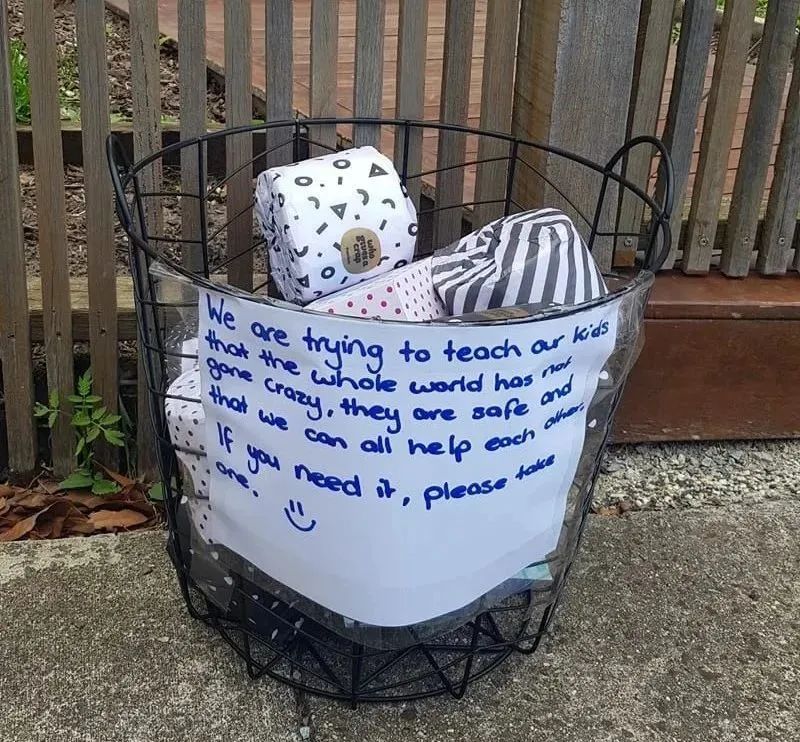 who
gives a
crap
We are trying to teach our kids
that the whole world has not
gone crazy, they are safe and
that we can all help each other.
If you need it, please take
one.